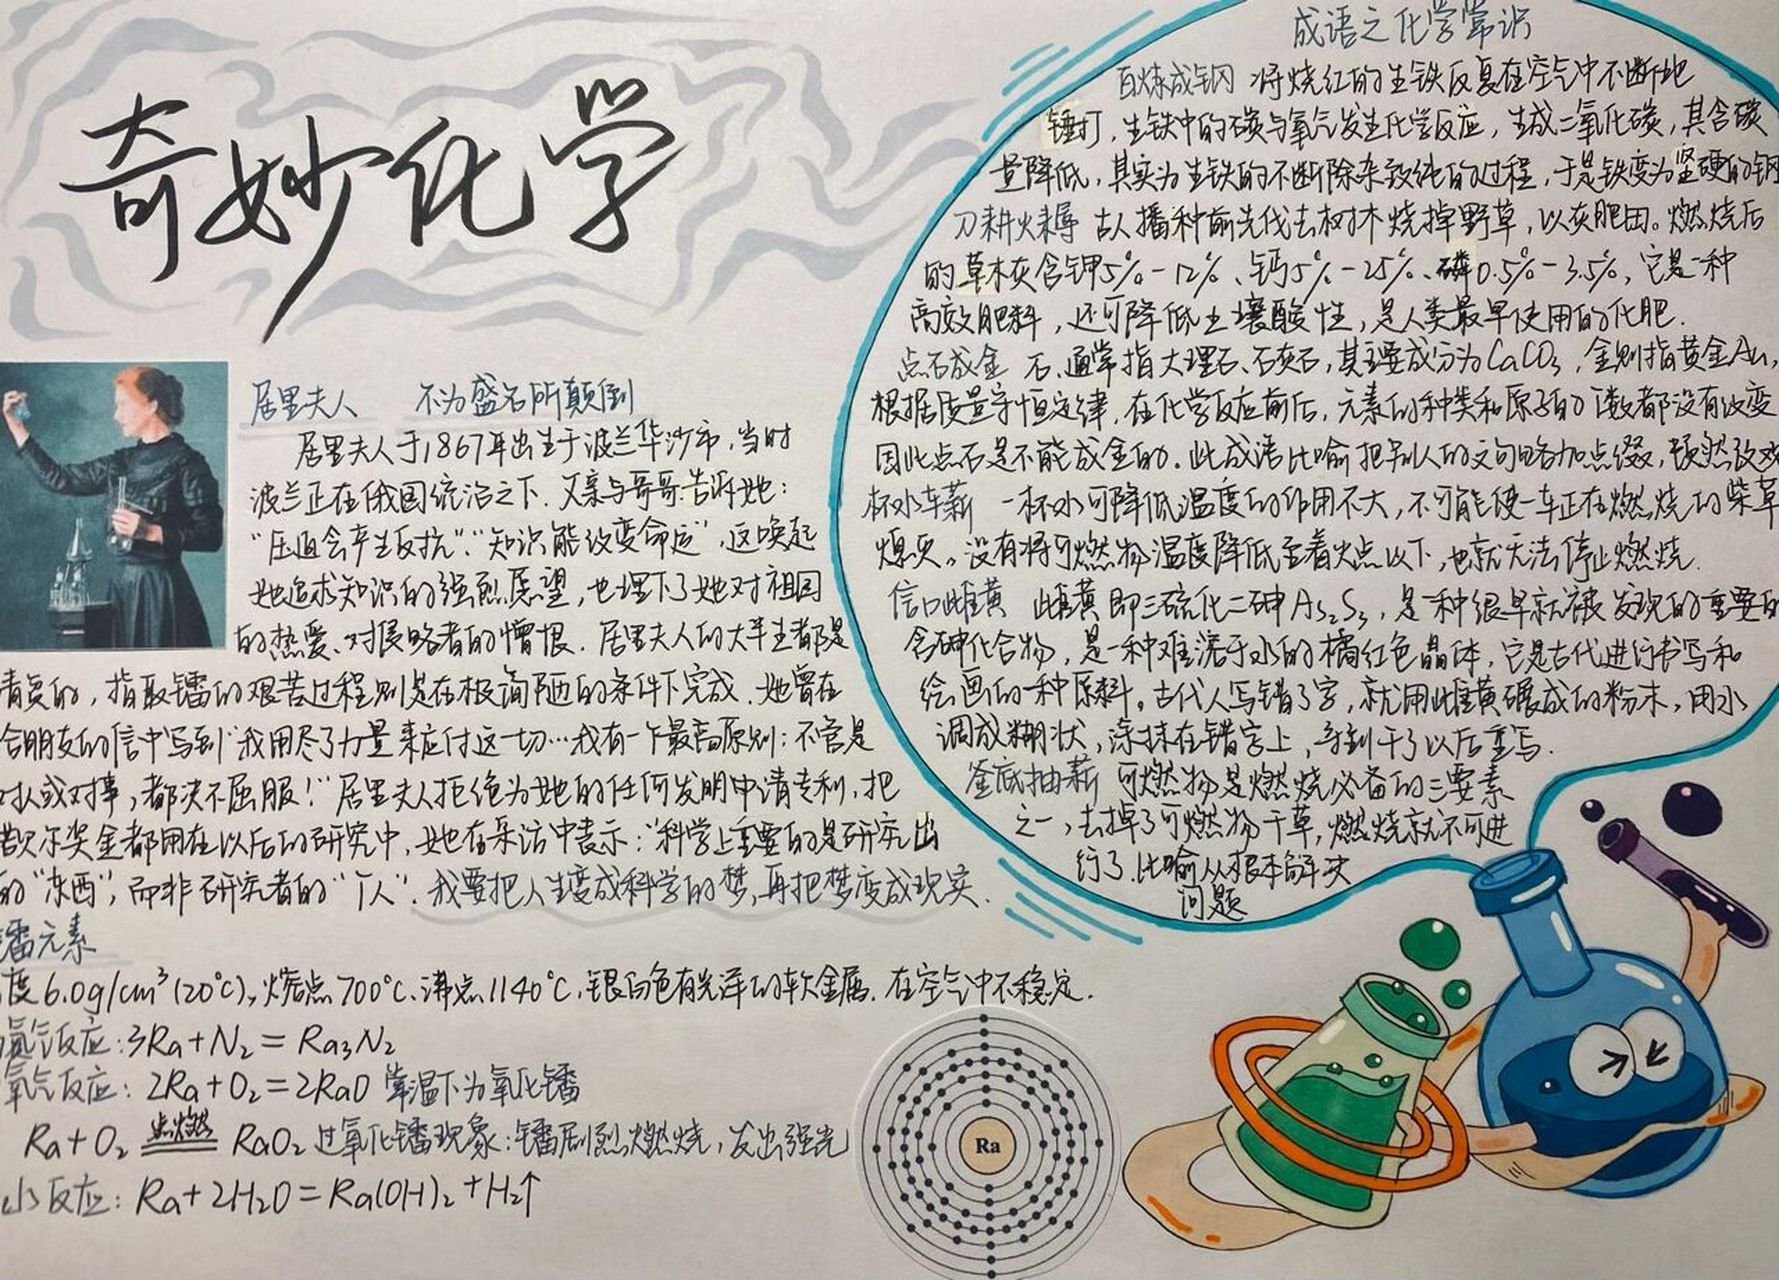 奇妙化学
居里夫人 不为盛名所颠倒
居里夫人于1867年出生于波兰华沙市，当时
波兰正在俄国统治之下．父亲与哥哥告诉她：
“压迫会产生反抗”“知识能改变命运”，这唤起
她追求知识的强烈愿望，也埋下了她对祖国
的热爱、对侵略者的憎恨．居里夫人的大半生都是
清贫的，提取镭的艰苦过程则是在极简陋的条件下完成．她曾在
给朋友的信中写到“我用尽了力量来应付这一切…我有一个最高原则：不管是
对人或对事，都决不屈服！”居里夫人拒绝为她的任何发明申请专利，把
诺贝尔奖金都用在以后的研究中，她在采访中表示：“科学上重要的是研究出
的“东西”，而非研究者的“个人”．我要把人生变成科学的梦，再把梦变成现实．
镭元素
度6.0g/cm³(20℃)，熔点700℃、沸点1140℃，银白色有光泽的软金属．在空气中不稳定．
氮气反应：3Ra+N₂=Ra₃N₂
氧气反应：2Ra+O₂=2RaO 常温下为氧化镭
Ra+O₂ 点燃 RaO₂ 过氧化镭现象：镭剧烈燃烧，发出强光
水反应：Ra+2H₂O=Ra(OH)₂+H₂↑
Ra
成语之化学常识
百炼成钢 将烧红的生铁反复在空气中不断地
锤打，生铁中的碳与氧气发生化学反应，生成二氧化碳，其含碳
量降低，其实为生铁的不断除杂致纯的过程，于是铁变为坚硬的钢
刀耕火耨 古人播种前先伐去树木烧掉野草，以灰肥田。燃烧后
的草木灰含钾5%-12%、钙5%-25%、磷0.5%-3.5%，它是一种
高效肥料，还可降低土壤酸性，是人类最早使用的化肥．
点石成金 石，通常指大理石、石灰石，其主要成分为CaCO₃，金则指黄金Au，
根据质量守恒定律，在化学反应前后，元素的种类和原子的个数都没有改变
因此点石是不能成金的．此成语比喻把别人的文句略加点缀，顿然改观
杯水车薪 一杯水可降低温度的作用不大，不可能使一车正在燃烧的柴草
熄灭。没有将可燃物温度降低至着火点以下，也就无法停止燃烧．
信口雌黄 雌黄即三硫化二砷As₂S₃，是一种很早就被发现的重要的
含砷化合物，是一种难溶于水的橘红色晶体，它是古代进行书写和
绘画的一种原料。古代人写错了字，就用雌黄碾成的粉末，用水
调成糊状，涂抹在错字上，等到干了以后重写．
釜底抽薪 可燃物是燃烧必备的三要素
之一，去掉了可燃物干草，燃烧就不可进
行了．比喻从根本解决
问题